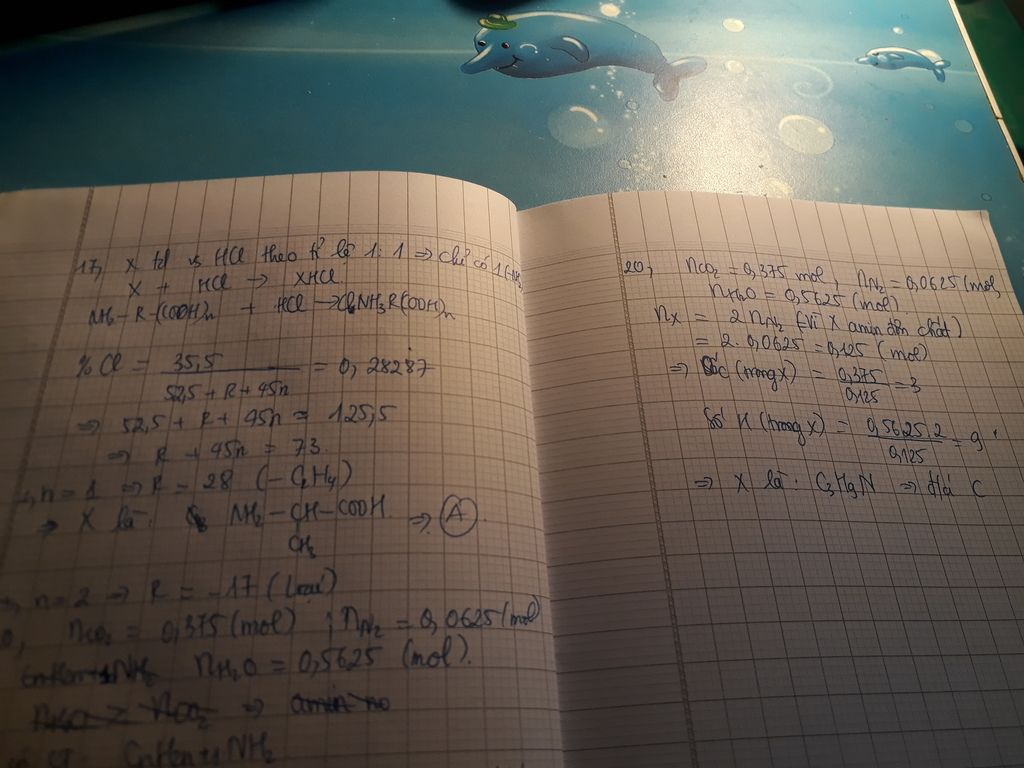 17, X td vs HCl theo tỉ lệ 1:1 ⇒ chỉ có 1(-NH₂
X + HCl → XHCl
NH₂-R-(COOH)ₙ + HCl → ClNH₃R(COOH)ₙ
%Cl = 35,5 / (52,5 + R + 45n) = 0,28287
⇒ 52,5 + R + 45n = 125,5
⇒ R + 45n = 73
+, n = 1 ⇒ R = 28 (-C₂H₄)
⇒ X là: NH₂-CH-COOH ⇒ (A)
CH₃
+, n = 2 ⇒ R = -17 (loại)
0, nCO₂ = 0,375 (mol) ; nN₂ = 0,0625 (mol)
CnH2n+1NH₂ nH₂O = 0,5625 (mol).
nH₂O > nCO₂ ⇒ amin no
CnH2n+1NH₂
20, nCO₂ = 0,375 mol, nN₂ = 0,0625 (mol,
nH₂O = 0,5625 (mol)
nX = 2nN₂ (vì X amin đơn chất)
= 2.0,0625 = 0,125 (mol)
⇒ Số C (trong X) = 0,375 / 0,125 = 3
Số H (trong X) = 0,5625.2 / 0,125 = 9
⇒ X là: C₃H₉N ⇒ đ/á C